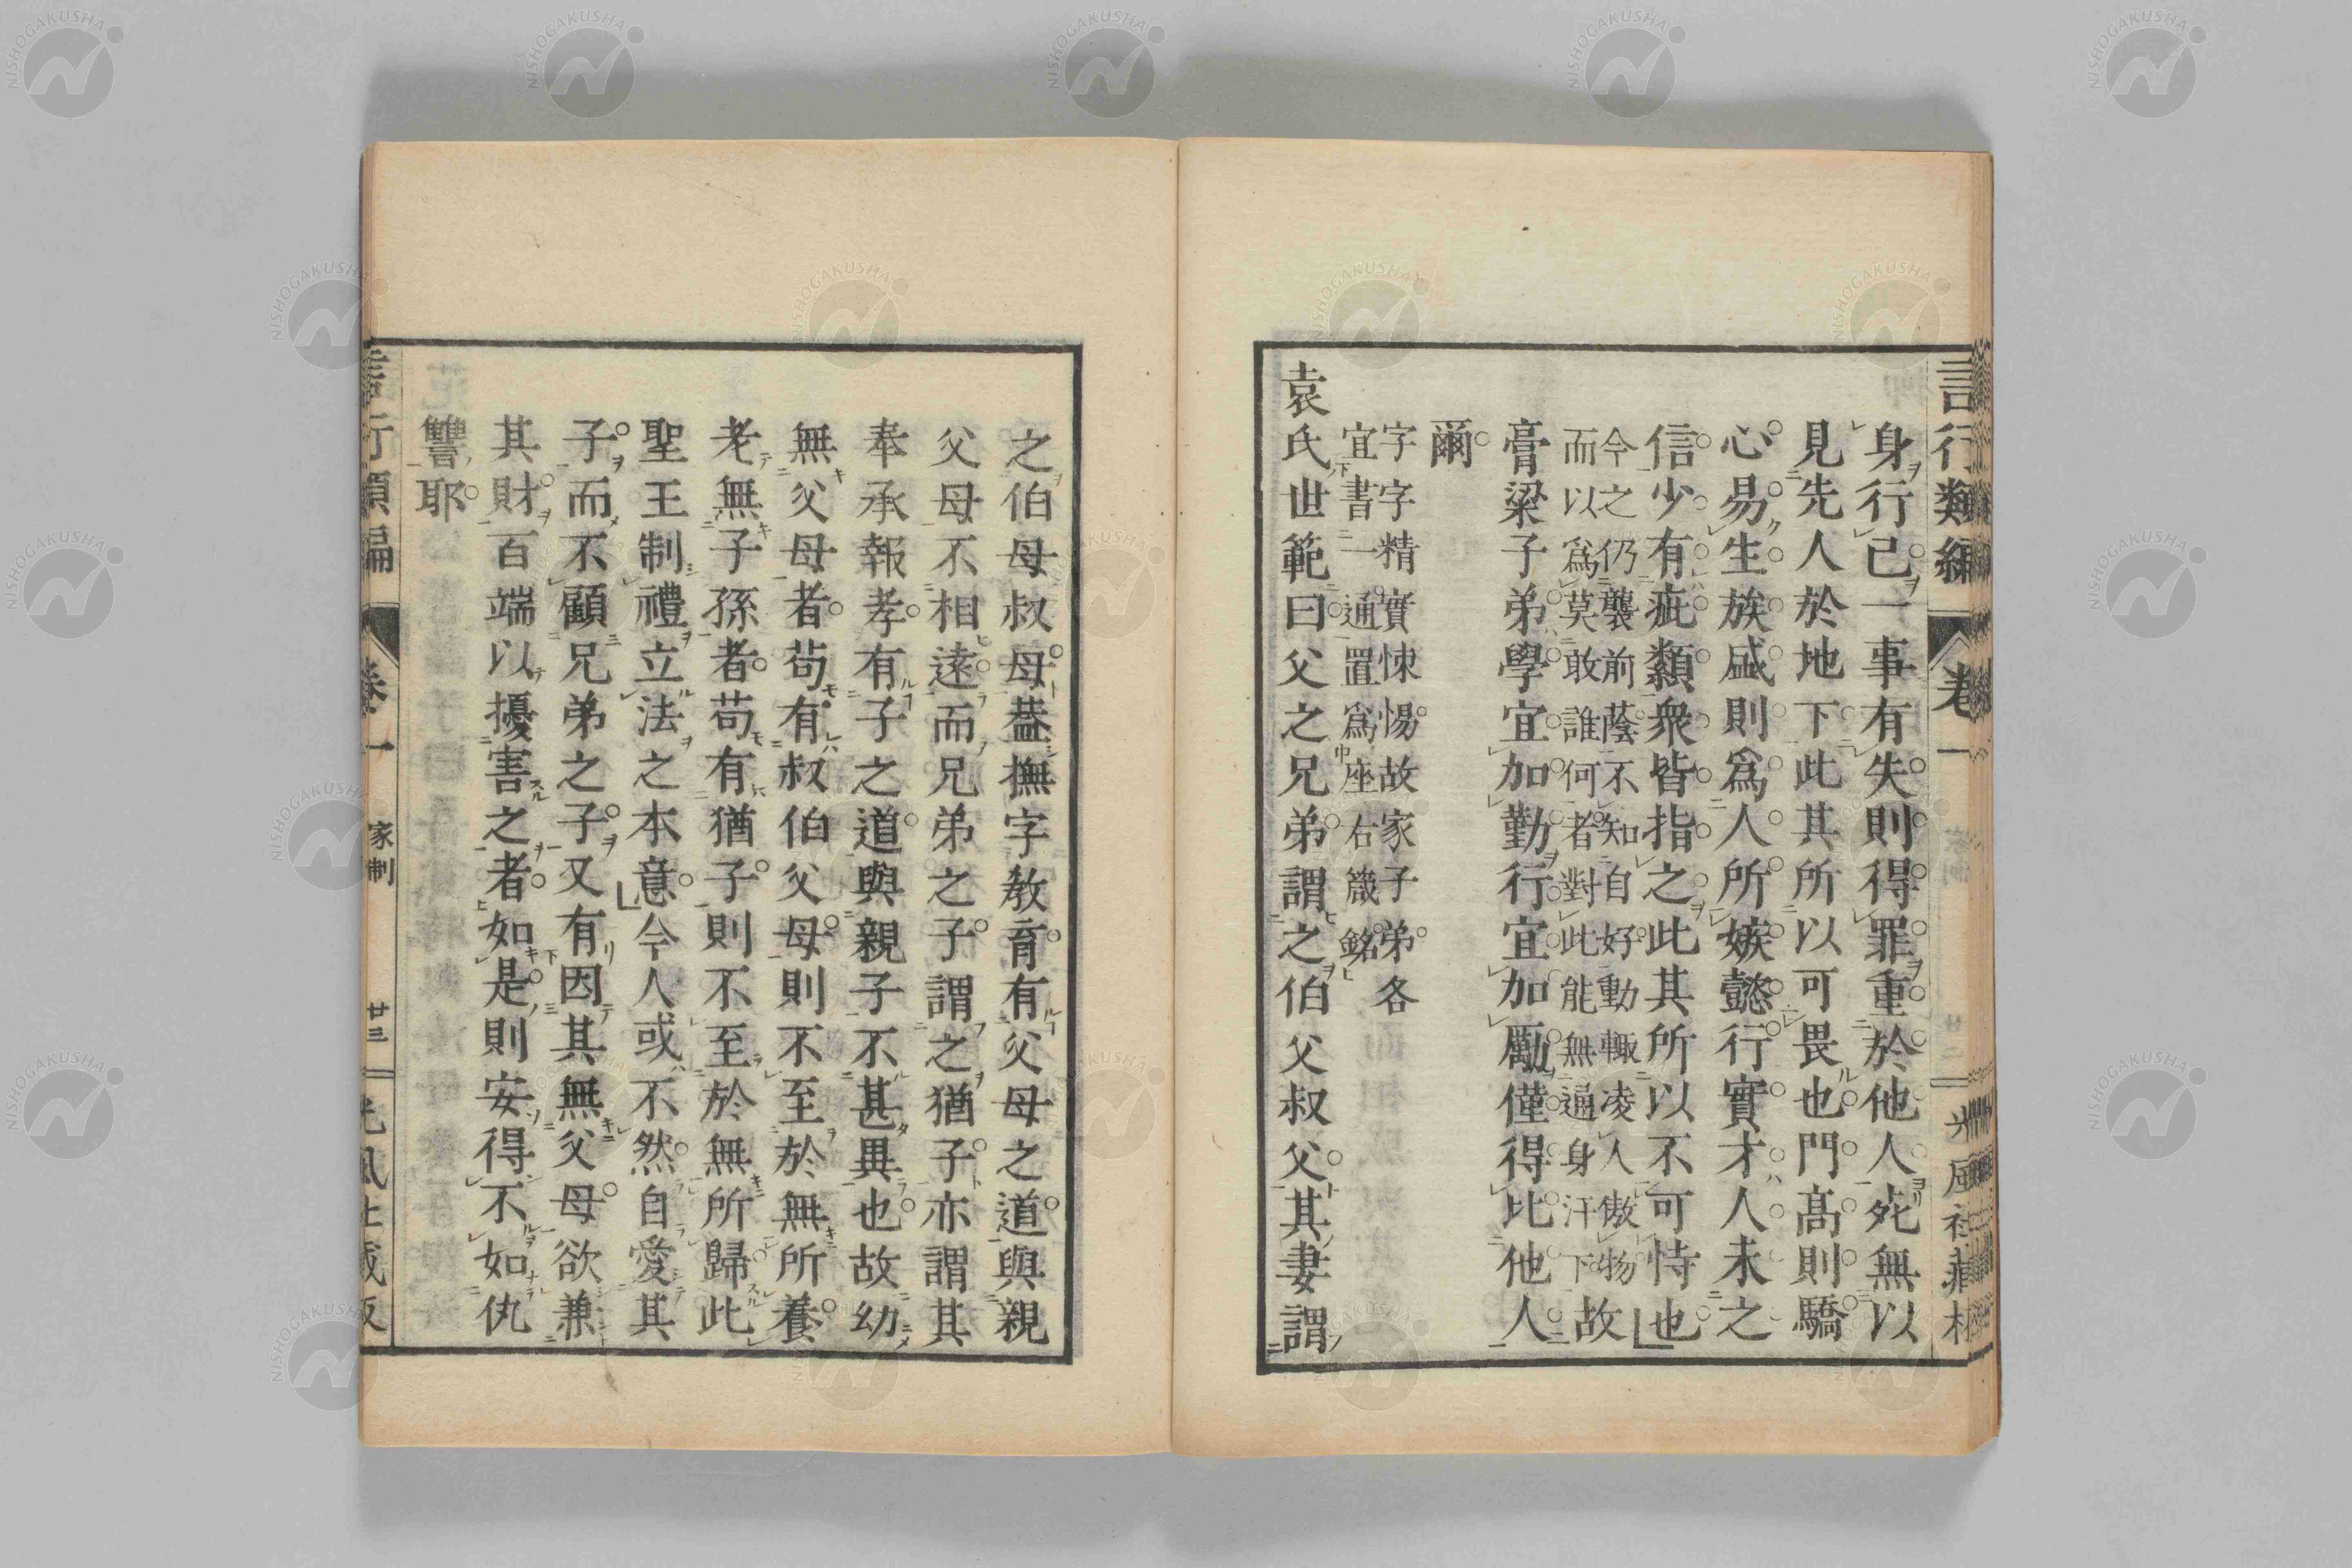 言行類編 卷一 光風社藏
身行己一事有失則得罪重於他人死無以
見先人於地下此其所以可畏也門高則驕
心易生族盛則爲人所嫉懿行實才人未之
信少有疵纇衆皆指之此其所以不可恃也
今之仍襲前蔭不知自好動輙凌人傲物
而以爲莫敢誰何者對此能無遍身汗下
故
膏粱子弟學宜加勤行宜加勵僅得比他人
爾
字字精實悚惕故家子弟各
宜書一通置爲座右箴銘
袁氏世範曰父之兄弟謂之伯父叔父其妻謂
之伯母叔母葢撫字敎育有父母之道與親
父母不相遠而兄弟之子謂之猶子亦謂其
奉承報孝有子之道與親子不甚異也故幼
無父母者苟有叔伯父母則不至於無所養
老無子孫者苟有猶子則不至於無所歸此
聖王制禮立法之本意今人或不然自愛其
子而不顧兄弟之子又有因其無父母欲兼
其財百端以擾害之者如是則安得不如仇
讐耶
言行類編 卷一 家制 廿三 光風社藏版
NISHOGAKUSHA